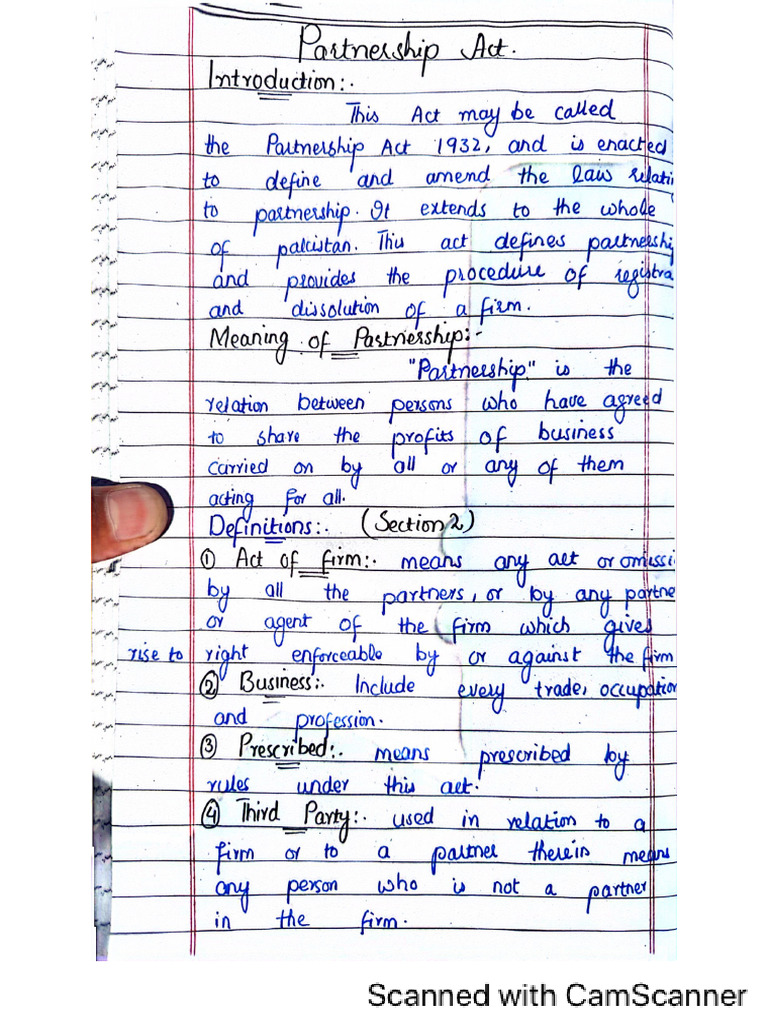 Partnership Act.
Introduction:.
This Act may be called
the Partnership Act 1932, and is enacted
to define and amend the law relati
to partnership. It extends to the whole
of pakistan. This act defines partnership
and provides the procedure of registra
and dissolution of a firm.
Meaning of Partnership:-
"Partnership" is the
relation between persons who have agreed
to share the profits of business
carried on by all or any of them
acting for all.
Definitions:. (Section 2)
① Act of firm:. means any act or omissi
by all the partners, or by any partne
or agent of the firm which gives
rise to right enforceable by or against the firm
② Business:. Include every trade, occupation
and profession.
③ Prescribed:. means prescribed by
rules under this act.
④ Third Party:. used in relation to a
firm or to a partner therein means
any person who is not a partner
in the firm.
Scanned with CamScanner